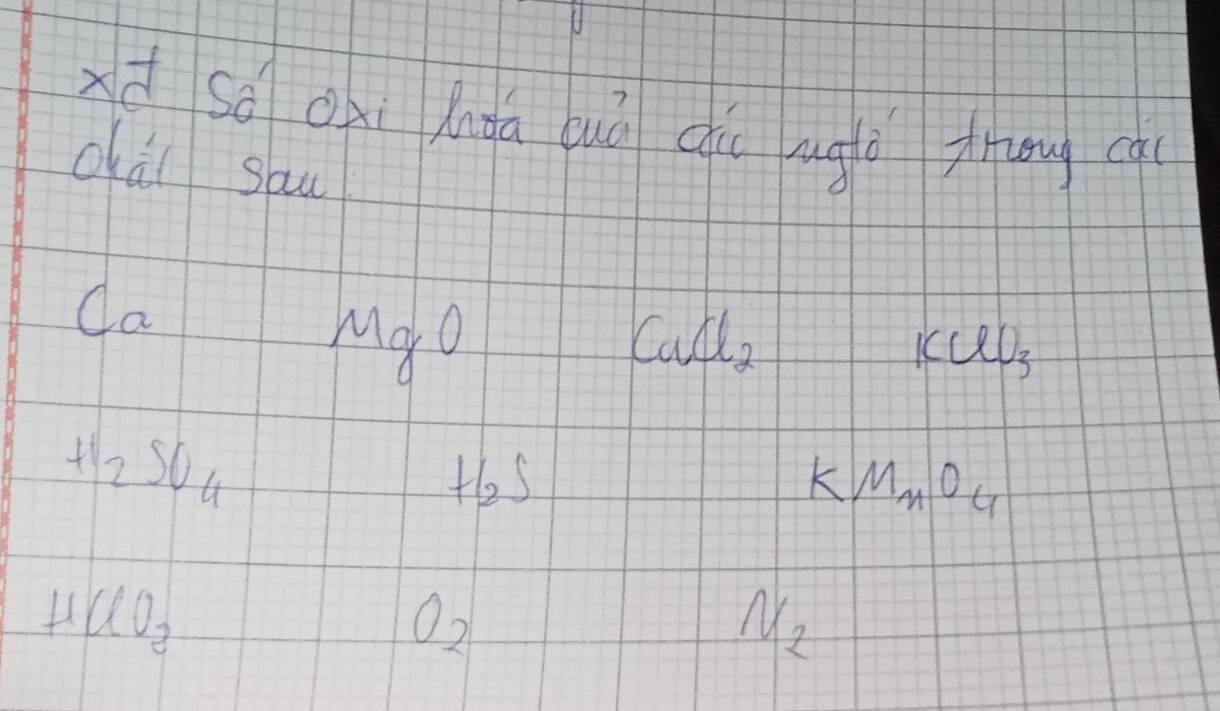 xđ Số oxi hoá của các ngtố trong các
chất sau
Ca MgO CuCl₂ KClO₃
H₂SO₄ H₂S KMnO₄
HClO₃ O₂ N₂